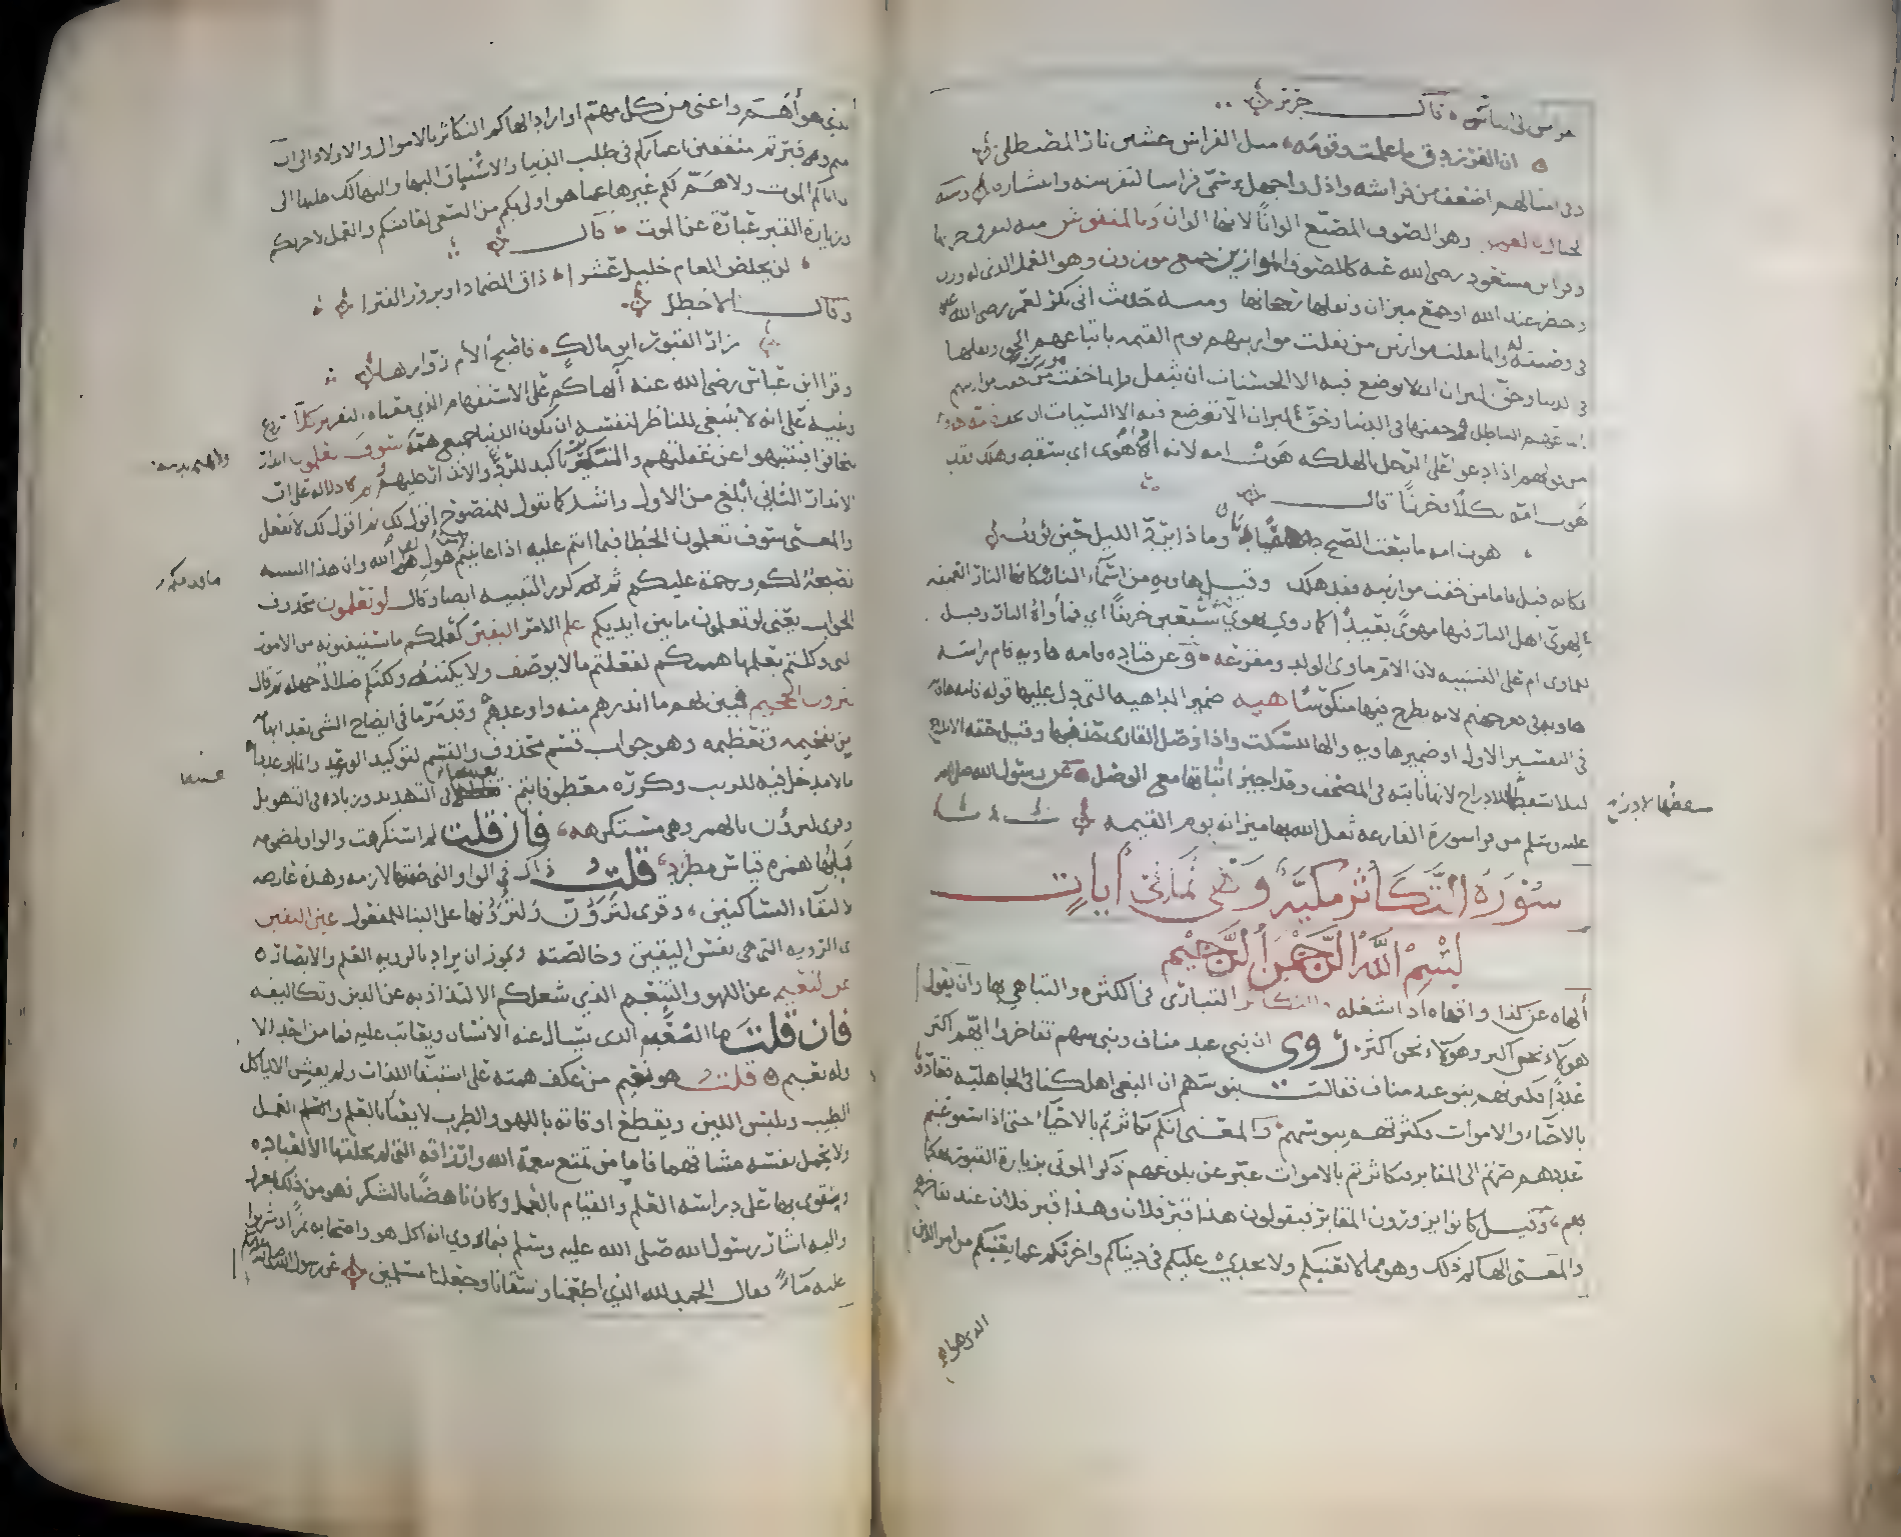 قال جرير
ان الفرزدق ما علمت وقومه مثل الفراش عشين نار المصطلي
وفي امثالهم اضعف من فراشة واذل واجهل وسمي فراشا لتفرشه وانتشاره
وهو الصوف المصبغ الوانا لانها الوان وبالمنفوش منه
مسعود رضي الله عنه كالصوف الموازين جمع موزون وهو العمل الذي له وزن
وخطر عند الله او جمع ميزان وثقلها رجحانها ومنه حديث ابي بكر لعمر رضي الله عنهما
وانما ثقلت موازين من ثقلت موازينهم يوم القيمة باتباعهم الحق وثقلها
في الدنيا وحق لميزان ان لا يوضع فيه الا الحسنات ان يثقل وانما خفت موازين من خفت موازينهم
باتباعهم الباطل وخفتها في الدنيا وحق لميزان لا توضع فيه الا السيات ان يخف فامه هاوية
من قولهم اذا دعوا على الرجل بالهلكة هوت امه لانه اذا هوى اي سقط وهلك فقد
هوت امه ثكلا وحزنا قال
هوت امه ما يبعث الصبح غاديا وما ذا يرد الليل حين يؤوب
فكانه قيل فاما من خفت موازينه فقد هلك وقيل هاوية من اسماء النار وكانها النار العميقة
لهوي اهل النار فيها مهوى بعيدا كما روي يهوي سبعين خريفا اي فمأواه النار وقيل
للماوى ام على التشبيه لان الام ماوى الولد ومفزعه وعن قتادة فامه هاوية فام راسه
هاوية في قعر جهنم لانه يطرح فيها منكوسا هيه ضمير الداهية التي دل عليها قوله فامه هاوية
في التفسير الاول او ضمير هاوية والها للسكت واذا وصل القارئ حذفها وقيل حقه الادراج
لئلا يسقطها الادراج لانها ثابتة في المصحف وقد اجيز اثباتها مع الوصل عن رسول الله صلى الله
عليه وسلم من قرا سورة القارعة ثقل الله بها ميزانه يوم القيمة
يسقطها الادراج
سورة التكاثر مكية وهي ثماني أيات
بسم الله الرحمن الرحيم
ألهاه عن كذا واقهاه اذا شغله والتكاثر التباري في الكثرة والتباهي بها وان يقول
هولاء نحن اكثر وهولاء نحن اكثر روى ان بني عبد مناف وبني سهم تفاخروا ايهم اكثر
عددا فكثرهم بنو عبد مناف فقالت بنو سهم ان البغي اهلكنا في الجاهلية فعادونا
بالاحياء والاموات فكثرتهم بنو سهم والمعنى انكم تكاثرتم بالاحياء حتى اذا استوعبتم
عددهم صرتم الى المقابر فتكاثرتم بالاموات عبر عن بلوغهم ذكر الموتى بزيارة القبور تهكما
بهم وقيل كانوا يزورون المقابر فيقولون هذا قبر فلان وهذا قبر فلان عند تفاخرهم
والمعنى الهاكم ذلك وهو مما لا يعنيكم ولا يجدي عليكم في دنياكم واخرتكم عما يعنيكم من امر الدين
الذي هو
الذي هو أهم واعنى من كل مهم او اراد الهاكم التكاثر بالاموال والاولاد الى ان
متم وقبرتم منفقين اعماركم في طلب الدنيا والاستباق اليها والتهالك عليها الى
ان اتاكم الموت ولا هم لكم غيرها عما هو اولى بكم من السعي لعاقبتكم والعمل لاخرتكم
وزيارة القبر عبارة عن الموت قال
لن يخلص العام خليل عشرا ذاق الضماد او يزور القبرا
وقال الاخطل
زار القبور ابو مالك فاصبح ألأم زوارها
وقرا ابن عباس رضي الله عنه أألهاكم على الاستفهام الذي معناه التقرير كلا ردع
وتنبيه على انه لا ينبغي للناظر لنفسه ان تكون الدنيا جميع همه سوف تعلمون انذار
ليخافوا فينتبهوا عن غفلتهم والتكرير تاكيد للردع والانذار عليهم وثم دلالة على ان
الانذار الثاني ابلغ من الاول واشد كما تقول للمنصوح اقول لك ثم اقول لك لا تفعل
والمعنى سوف تعلمون الخطا فيما انتم عليه اذا عاينتم هول لقاء الله وان هذا التنبيه
نصيحة لكم ورحمة عليكم ثم كرر التنبيه ايضا وقال لو تعلمون محذوف
الجواب يعني لو تعلمون ما بين ايديكم علم الامر اليقين كعلمكم ما تستيقنونه من الامور
التي وكلتم بعلمها هممكم لفعلتم ما لا يوصف ولا يكتنه ولكنكم ضلال جهلة ثم قال
لترون الجحيم فبين لهم ما انذرهم منه واوعدهم وقد مر ما في ايضاح الشي بعد ابهامه
من تفخيمه وتعظيمه وهو جواب قسم محذوف والقسم لتوكيد الوعيد وان ما اوعدوا
ما لا مدخل فيه للريب وكرره معطوفا بثم تغليظا في التهديد وزيادة في التهويل
وقرى لترؤن بالهمز وهي مستكرهة فان قلت لم استكرهت والواو المضمومة
قبلها همزة قياس مطرد قلت ذاك في الواو التي ضمتها لازمة وهذه عارضة
لالتقاء الساكنين وقرى لترون ولترونها على البنا للمفعول عين اليقين
اي الروية التي هي نفس اليقين وخالصته ويجوز ان يراد بالروية العلم والابصار
عن النعيم عن اللهو والتنعم الذي شغلكم الالتذاذ به عن الدين وتكاليفه
فان قلت ما النعيم الذي يسال عنه الانسان ويعاتب عليه فما من احد الا
وله نعيم قلت هو نعيم من عكف همته على استيفا اللذات ولم يعش الا لياكل
الطيب ويلبس اللين ويقطع اوقاته باللهو والطرب لا يعبا بالعلم والعمل
ولا يحمل نفسه مشاقهما فاما من تمتع بنعمة الله وارزاقه التي لم يخلقها الا لعباده
وتقوى بها على دراسة العلم والقيام بالعمل وكان ناهضا بالشكر فهو من ذاك بمعزل
واليه اشار رسول الله صلى الله عليه وسلم فيما روي انه اكل هو واصحابه تمرا وشربوا
عليه ماء فقال الحمد لله الذي اطعمنا وسقانا وجعلنا مسلمين عن رسول الله صلى الله عليه